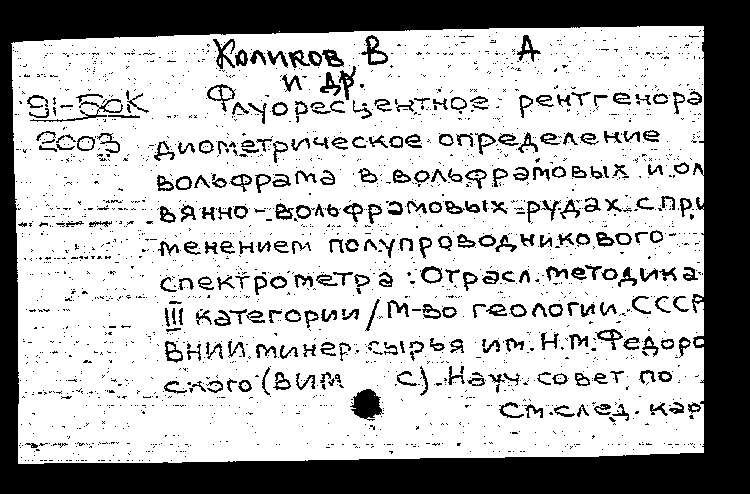 Коликов В А
и др.
91-50К Флуоресцентное рентгенора
2003 диометрическое определение
вольфрама в вольфрамовых и ол
вянно-вольфрамовых рудах с при
менением полупроводникового
спектрометра: Отрасл. методика
III категории / М-во геологии СССР
ВНИИ минер. сырья им. Н.М. Федоро
ского (ВИМС). Науч. совет по
См. след. кар